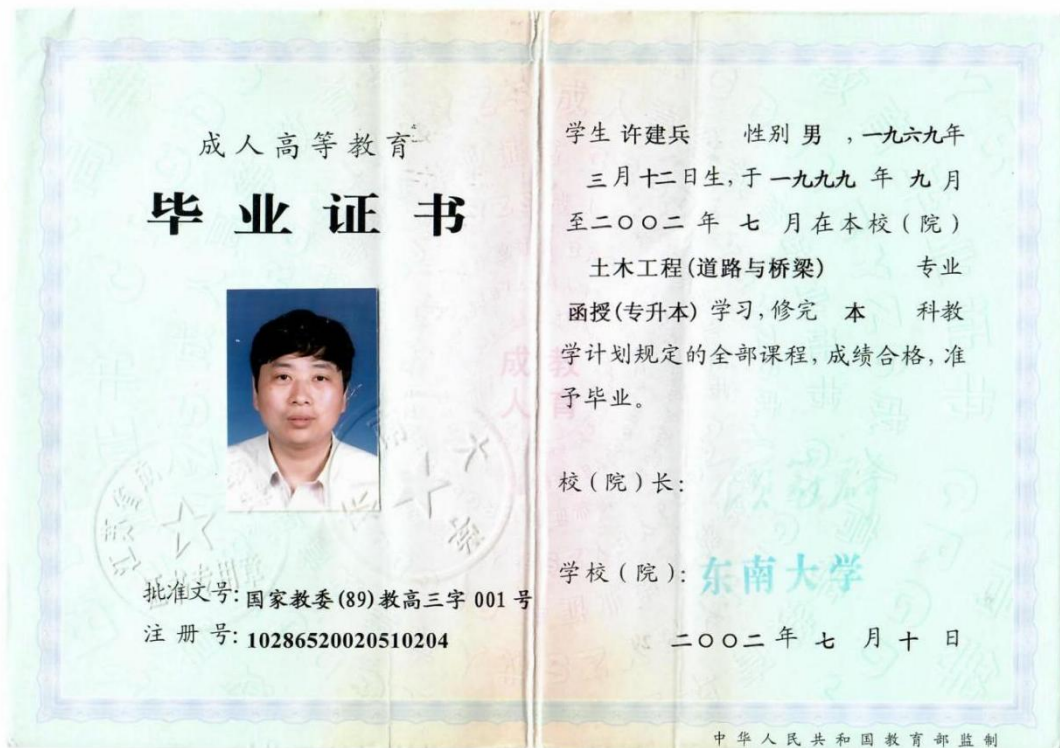 成人高等教育
毕业证书
批准文号: 国家教委(89)教高三字 001 号
注 册 号: 10286520020510204
学生 许建兵 性别 男 , 一九六九年
三月十二日生, 于 一九九九 年 九 月
至二〇〇二 年 七 月在本校(院)
土木工程(道路与桥梁) 专业
函授(专升本) 学习, 修完 本 科教
学计划规定的全部课程, 成绩合格, 准
予毕业。
校(院)长:
学校(院): 东南大学
二〇〇二 年 七 月 十 日
中华人民共和国教育部监制